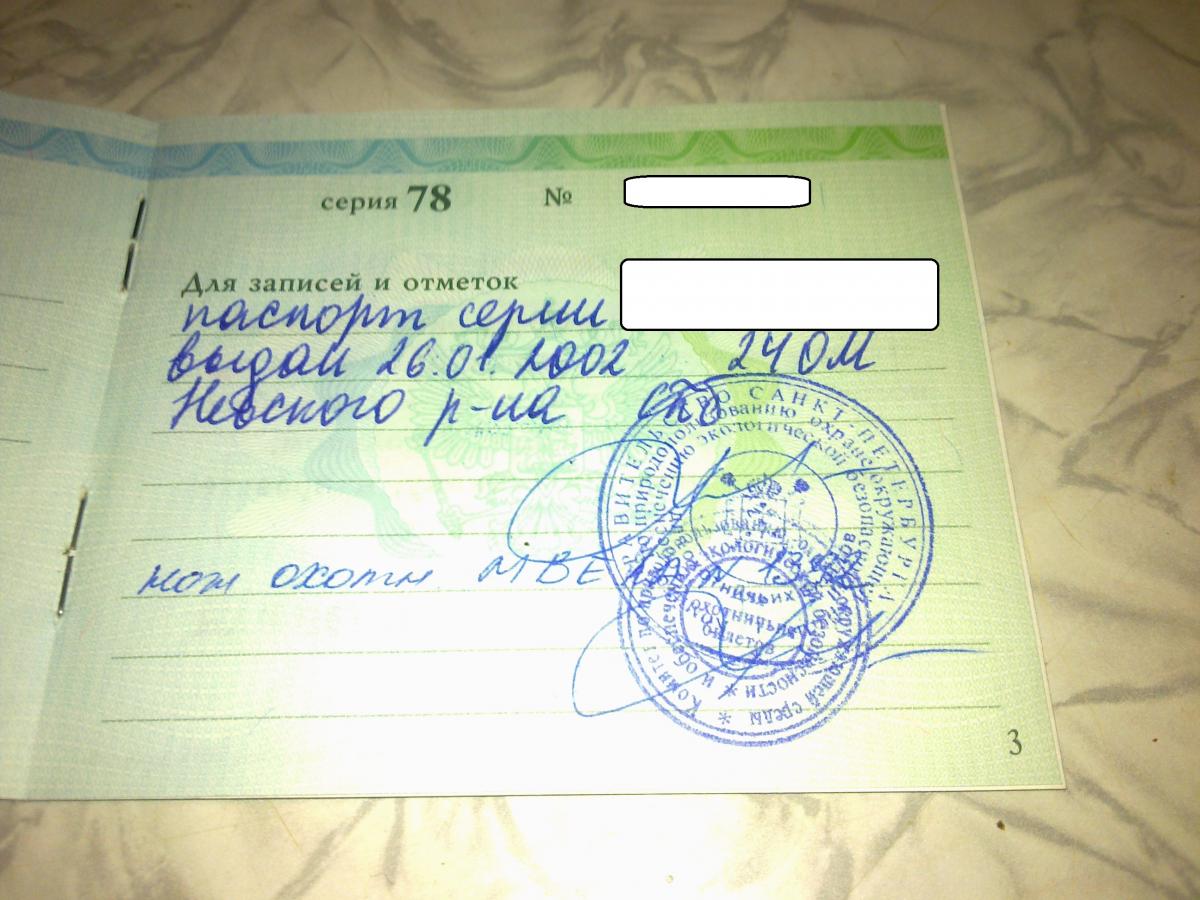 серия 78 №
Для записей и отметок
паспорт серии
выдан 26.01.2002 24 ОМ
Невского р-на СПб
нож охотн МВЕ
ПРАВИТЕЛЬСТВО САНКТ-ПЕТЕРБУРГА
Комитет по природопользованию охране окружающей среды
и обеспечению экологической безопасности
охотничьих
билетов
3